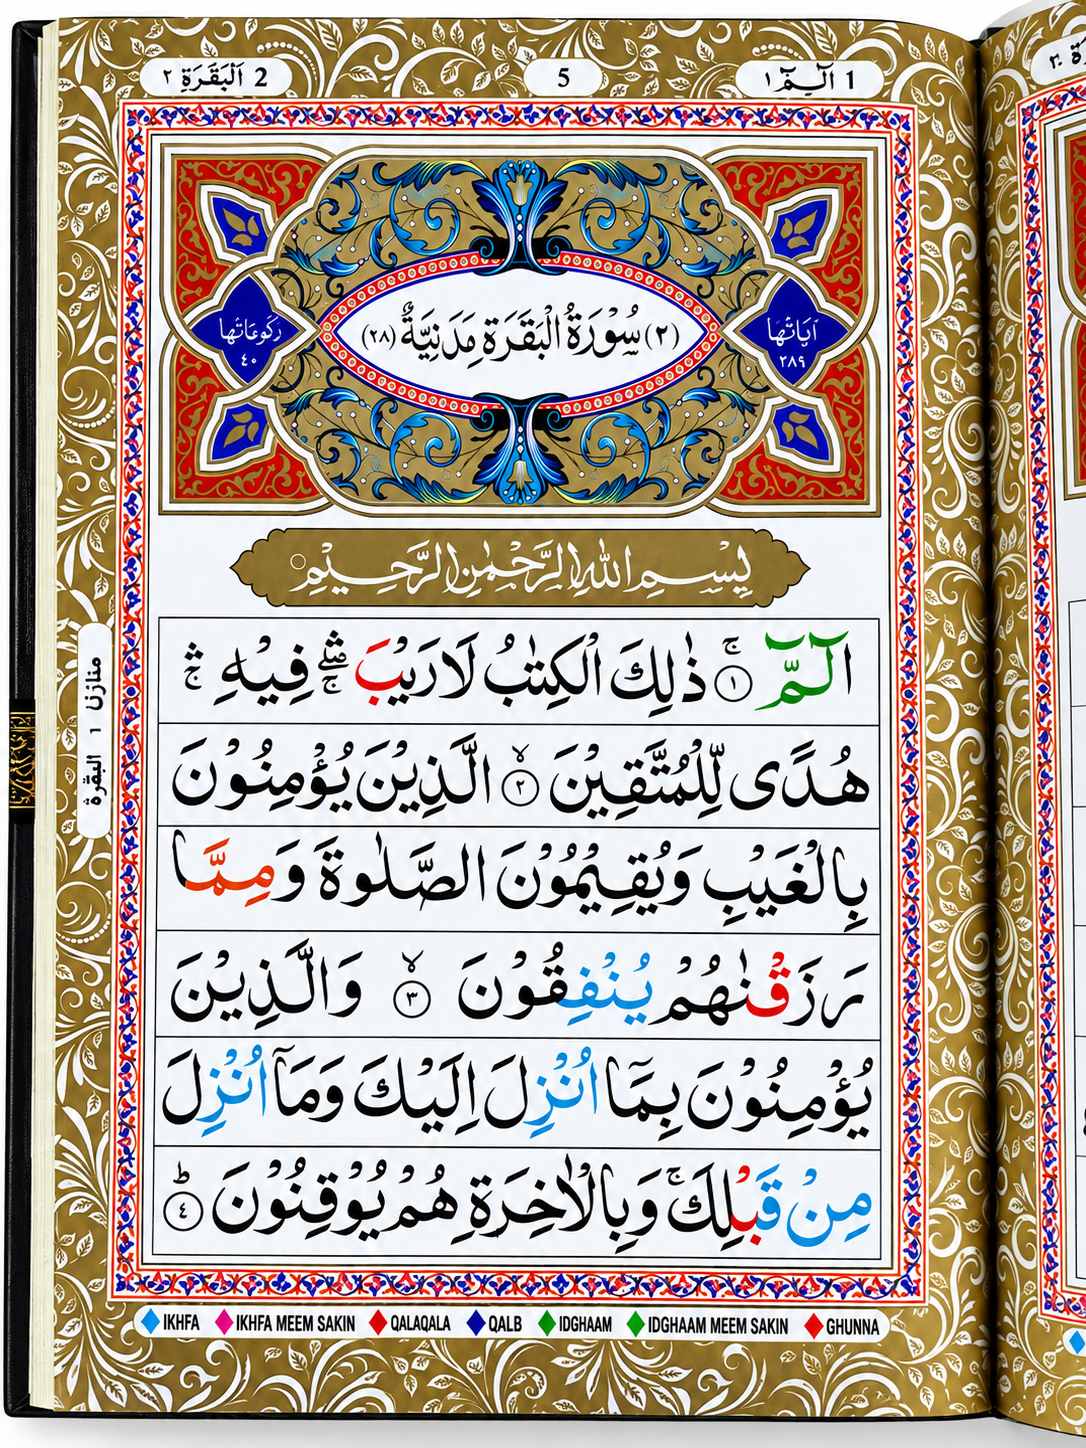 2 اَلْبَقَرَة ٢
5
1 الٓمّٓ ١
رُكُوعَاتُهَا ٤٠
(٢) سُوْرَةُ الْبَقَرَةِ مَدَنِيَّةٌ (٢٨)
اٰيَاتُهَا ٢٨٩
بِسْمِ اللّٰهِ الرَّحْمٰنِ الرَّحِيْمِ
الٓمّٓ ۚ ١ ذٰلِكَ الْكِتٰبُ لَا رَيْبَ ۛۖ ۚ فِيْهِ ۛۚ
هُدًى لِّلْمُتَّقِيْنَ ۙ ٢ الَّذِيْنَ يُؤْمِنُوْنَ
بِالْغَيْبِ وَيُقِيْمُوْنَ الصَّلٰوةَ وَمِمَّا
رَزَقْنٰهُمْ يُنْفِقُوْنَ ۙ ٣ وَالَّذِيْنَ
يُؤْمِنُوْنَ بِمَآ اُنْزِلَ اِلَيْكَ وَمَآ اُنْزِلَ
مِنْ قَبْلِكَ ۚ وَبِالْاٰخِرَةِ هُمْ يُوْقِنُوْنَ ؕ ٤
البقرة ١
IKHFA IKHFA MEEM SAKIN QALAQALA QALB IDGHAAM IDGHAAM MEEM SAKIN GHUNNA